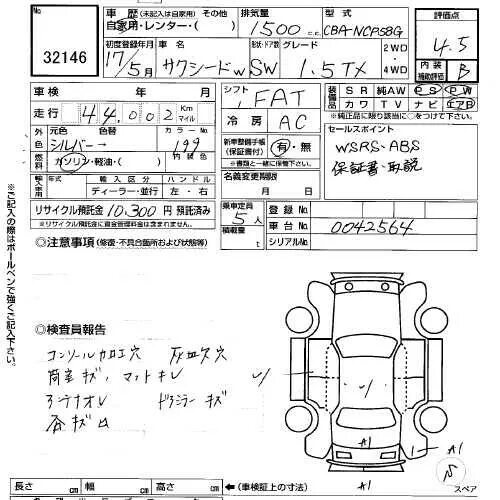 32146
車歴 (未記入は自家用) その他
自家用・レンター・( )
排気量
1500 cc
型式
CBA-NCP58G
評価点
4.5
内装補助評価
B
初度登録年月
17/5月
車名
サクシードw
形状・ドア数
SW
グレード
1.5TX
2WD・4WD
車検 年 月
走行 44,002 Km マイル
外色 元色 色替 カラーNo
シルバー→ 199
燃料 ガソリン・軽油・( ) 内装色
輸入車用 年式 輸入区分 ハンドル
ディーラー・並行 左・右
リサイクル預託金 10,300円 預託済み
※リサイクル預託金に資金管理料金は含まれません。
シフト
FAT
冷房
AC
新車整備手帳(保証書付) 有・無
※書類と一緒に保管して下さい。
名義変更期限 月 日
乗車定員 5人
積載量 t
装備品 SR 純AW PS PW
カワ TV ナビ エアB
※純正品に限り該当に○をつけて下さい。
セールスポイント
WSRS・ABS
保証書・取説
登録No.
車台No. 0042564
シリアルNo.
◎注意事項 (修復・不具合箇所および状態等)
※ご記入の際はボールペンで強くご記入下さい。
◎検査員報告
コンソール加工穴 灰皿穴
荷室キズ、マットキレ
アンテナオレ ドアミラーキズ
A1
A1
A1
スペア
長さ cm 幅 cm 高さ cm ←(車検証上の寸法)